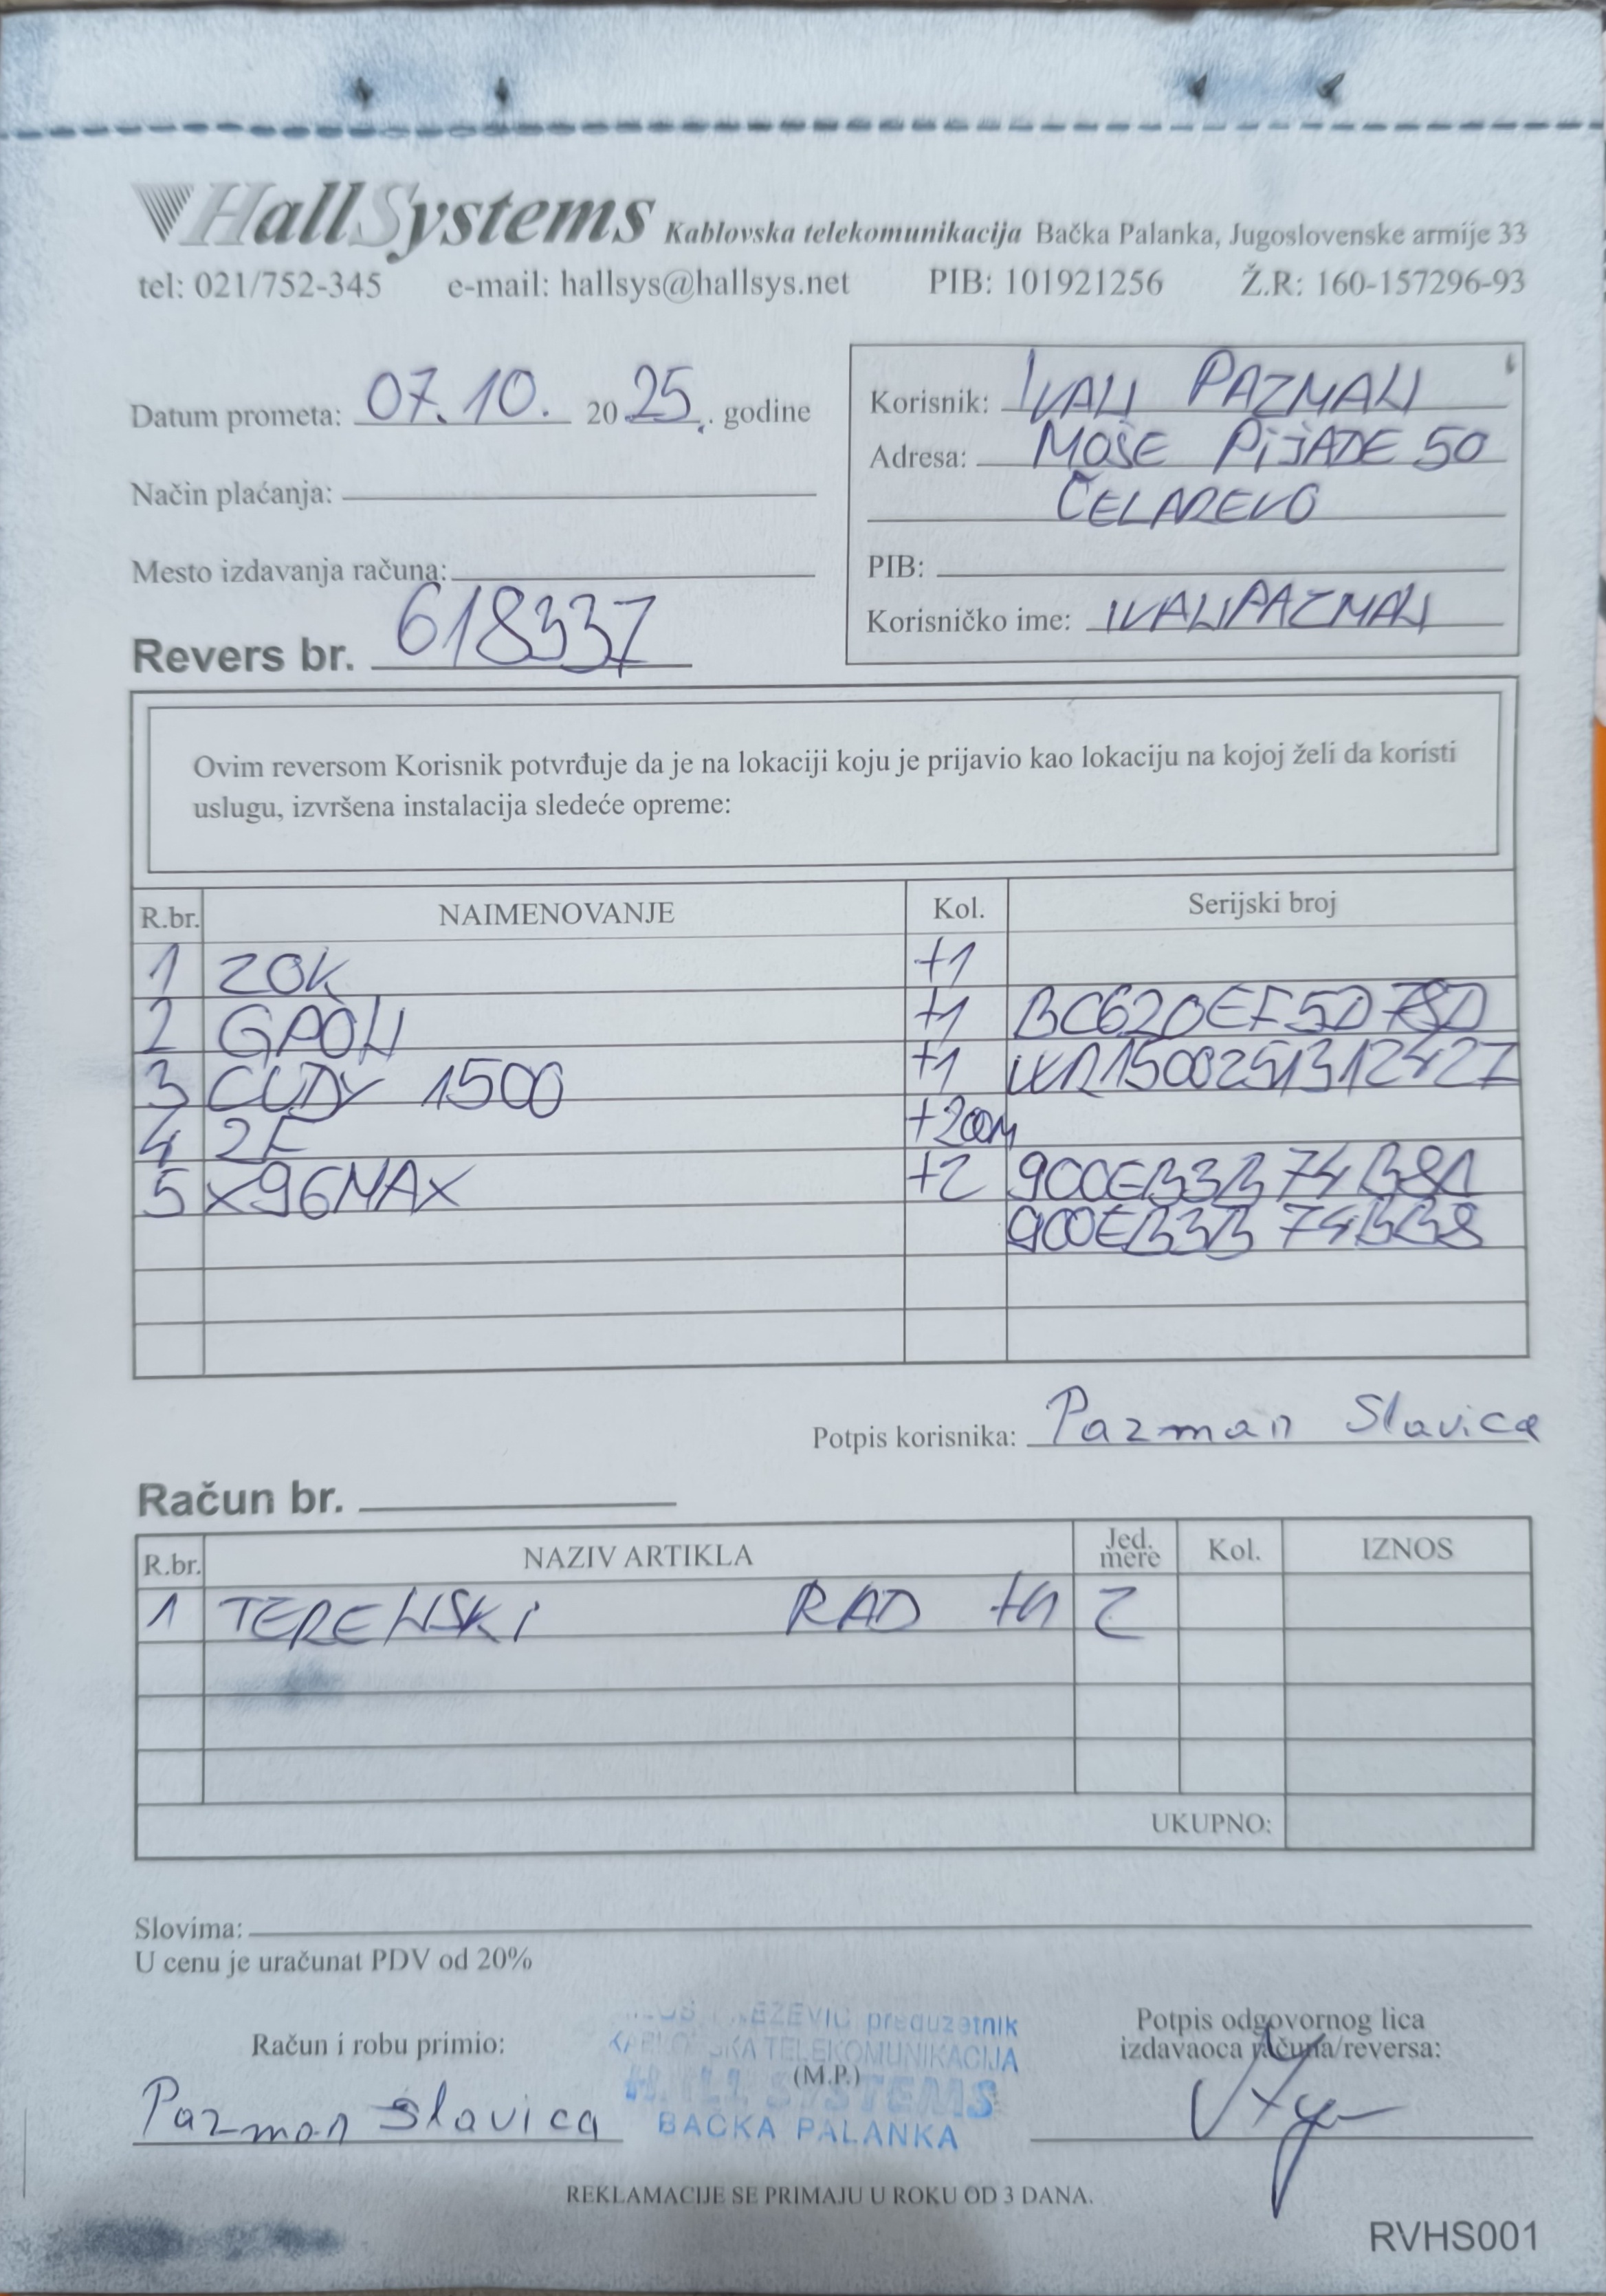 HallSystems Kablovska telekomunikacija Bačka Palanka, Jugoslovenske armije 33
tel: 021/752-345 e-mail: hallsys@hallsys.net PIB: 101921256 Ž.R: 160-157296-93
Datum prometa: 07.10. 2025. godine
Način plaćanja:
Mesto izdavanja računa:
Revers br. 618337
Korisnik: IVAN PAZMAN
Adresa: MOŠE PIJADE 50
ČELAREVO
PIB:
Korisničko ime: IVANPAZMAN
Ovim reversom Korisnik potvrđuje da je na lokaciji koju je prijavio kao lokaciju na kojoj želi da koristi
uslugu, izvršena instalacija sledeće opreme:
R.br. NAIMENOVANJE Kol. Serijski broj
1 ZOK +1
2 GPON +1 BC620EF5D78D
3 CUDY 1500 +1
4 2F +200M
5 X96MAX +2 900EB3B74B81
900EB3B74BB8
Potpis korisnika: Pazman Slavica
Račun br.
R.br. NAZIV ARTIKLA Jed. mere Kol. IZNOS
1 TERENSKI RAD +1 2
UKUPNO:
Slovima:
U cenu je uračunat PDV od 20%
Račun i robu primio:
Pazman Slavica
preduzetnik
TELEKOMUNIKACIJA
(M.P.)
HALL SYSTEMS
BAČKA PALANKA
Potpis odgovornog lica
izdavaoca računa/reversa:
REKLAMACIJE SE PRIMAJU U ROKU OD 3 DANA.
RVHS001